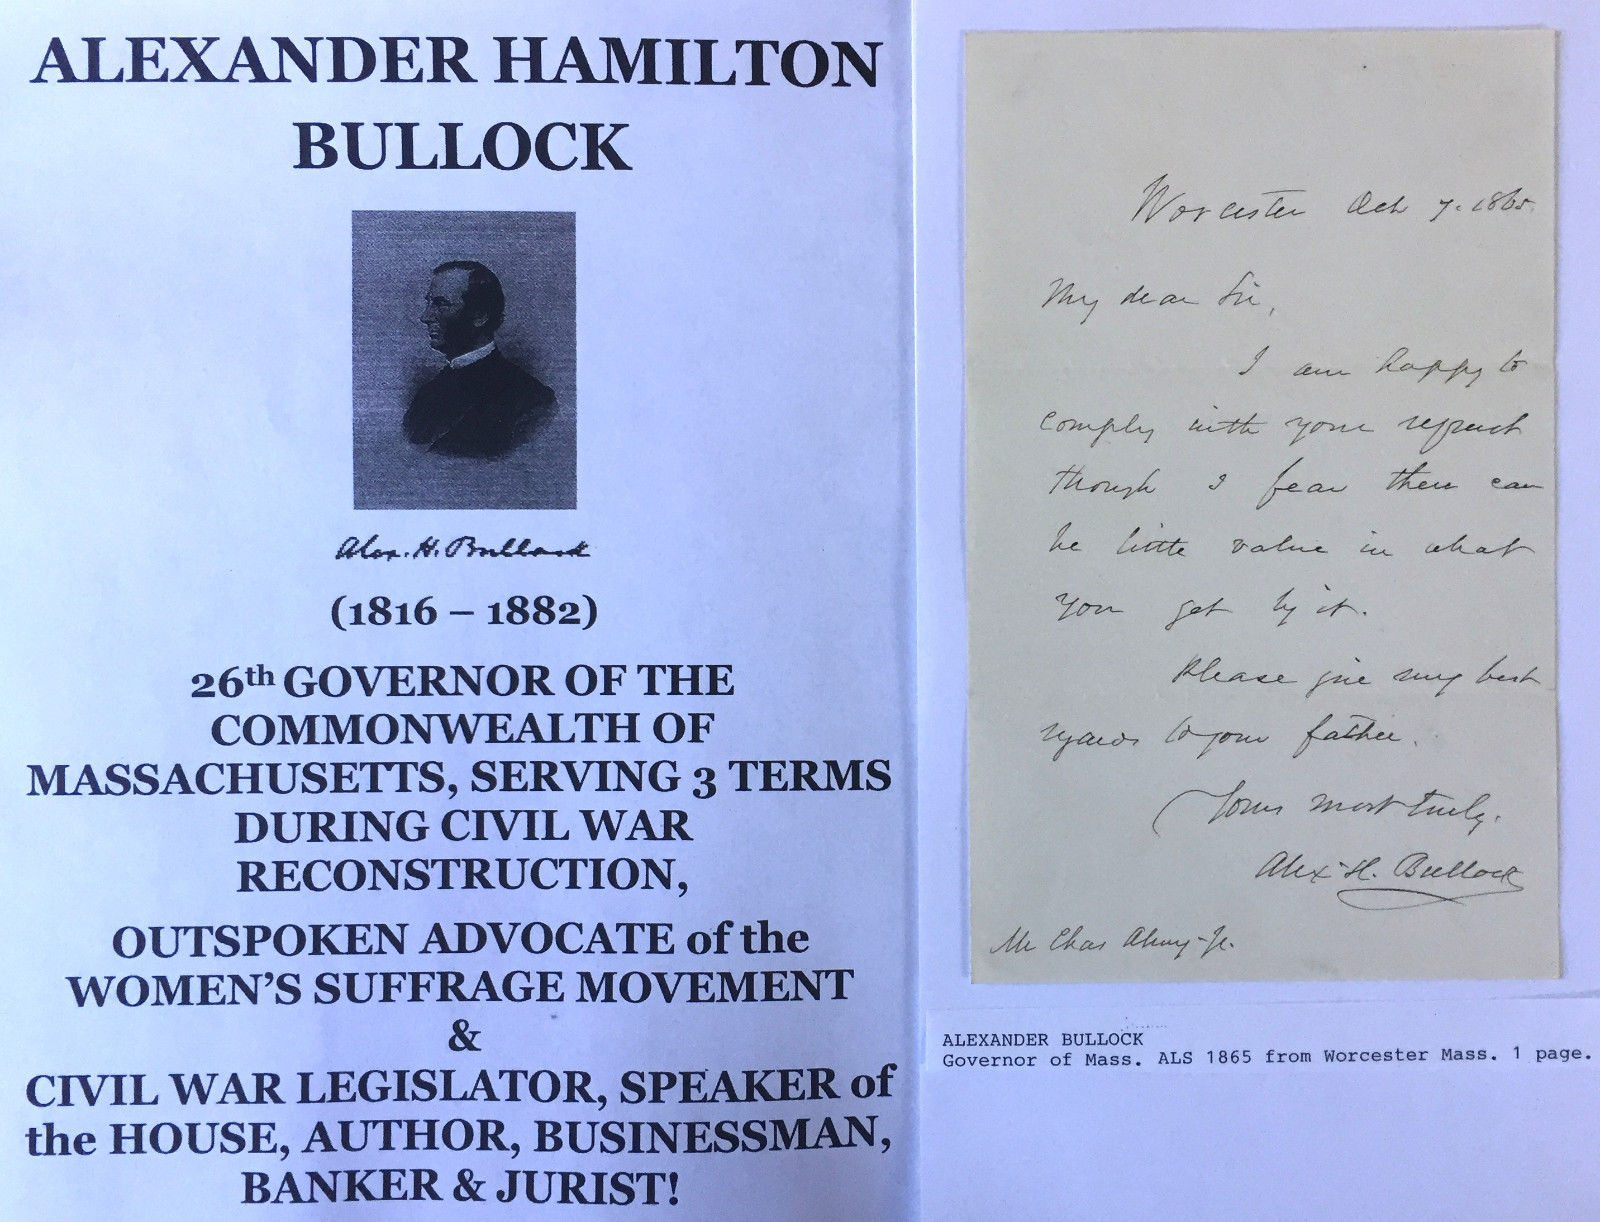 ALEXANDER HAMILTON
BULLOCK
Alex. H. Bullock
(1816 – 1882)
26th GOVERNOR OF THE
COMMONWEALTH OF
MASSACHUSETTS, SERVING 3 TERMS
DURING CIVIL WAR
RECONSTRUCTION,
OUTSPOKEN ADVOCATE of the
WOMEN'S SUFFRAGE MOVEMENT
&
CIVIL WAR LEGISLATOR, SPEAKER of
the HOUSE, AUTHOR, BUSINESSMAN,
BANKER & JURIST!
Worcester Oct 7. 1865.
My dear Sir,
I am happy to
comply with your request
though I fear there can
be little value in what
you get by it.
Please give my best
regards to your father.
Yours most truly,
Alex H. Bullock
Mr Chas Almy Jr.
ALEXANDER BULLOCK
Governor of Mass. ALS 1865 from Worcester Mass. 1 page.